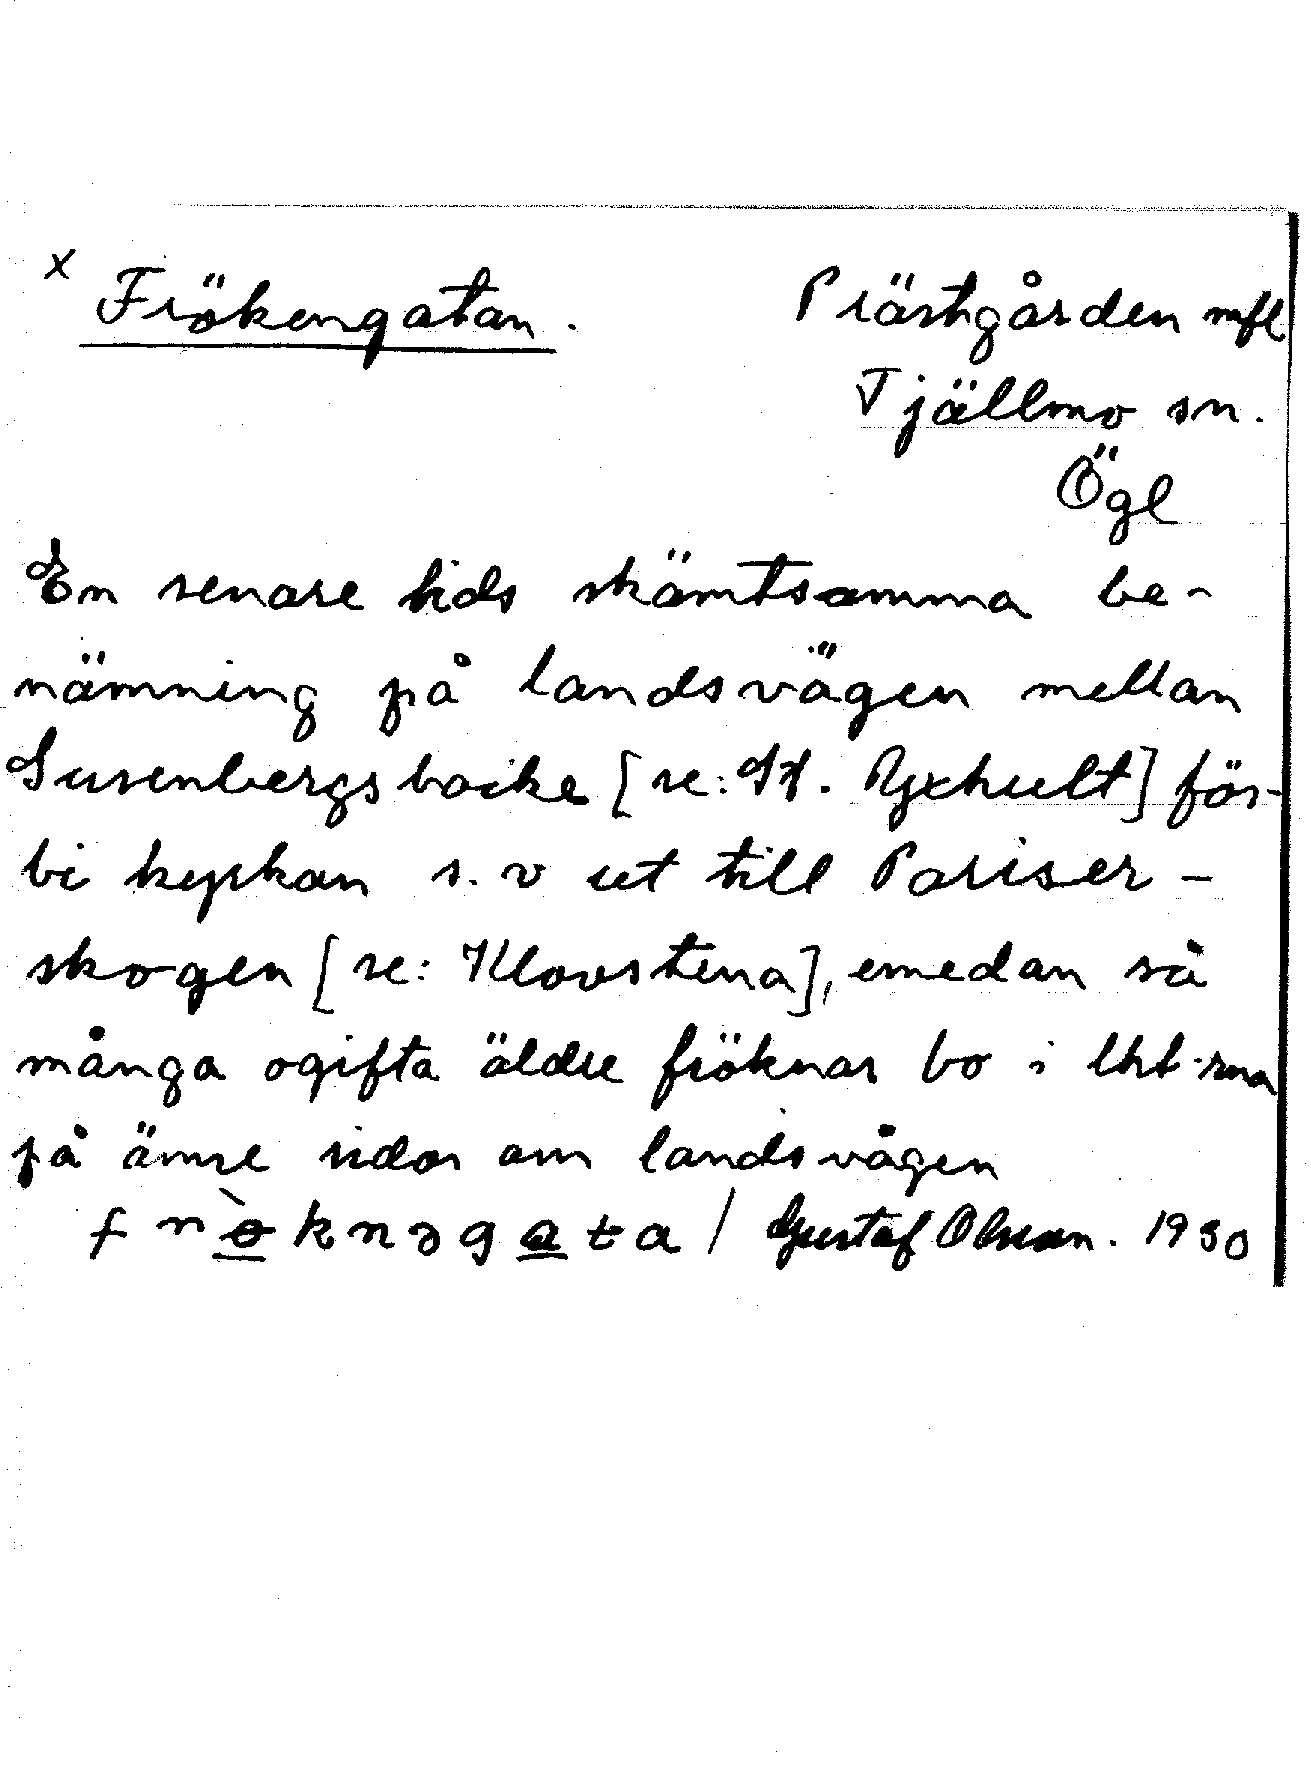 x Frökengatan. Prästgården mfl
Tjällmo sn.
Ögl
En senare tids skämtsamma be-
nämning på landsvägen mellan
Susenbergsbacke [se: St. Yxhult] för-
bi kyrkan s.v ut till Pariser-
skogen [se: Klovstena], emedan så
många ogifta äldre fröknar bo i lht-rna
på ömse sidor om landsvägen
frø̀knəgata / Gustaf Olsson. 1930